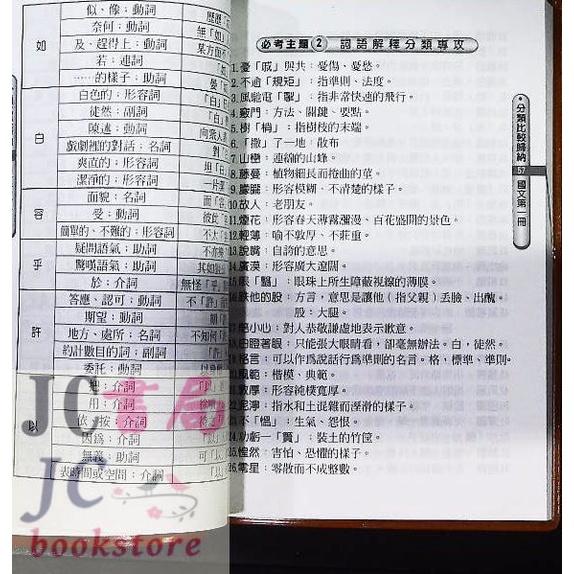 如
似、像：動詞
奈何；動詞
及、趕得上；動詞
若；連詞
……的樣子；助詞
白
白色的；形容詞
徒然；副詞
陳述；動詞
戲劇裡的對話；名詞
爽直的；形容詞
潔淨的；形容詞
容
面貌；名詞
受；動詞
簡單的、不難的；形容詞
乎
疑問語氣；助詞
驚嘆語氣；助詞
於；介詞
許
答應、認可；動詞
期望；動詞
地方、處所；名詞
約計數目的詞；副詞
以
委托；動詞
把；介詞
用；介詞
依、按；介詞
因為；介詞
無義；助詞
表時間或空間；介詞
必考主題 2 詞語解釋分類專攻
1.憂「戚」與共：憂傷、憂愁。
2.不逾「規矩」：指準則、法度。
3.風馳電「掣」：指非常快速的飛行。
4.竅門：方法、關鍵、要點。
5.樹「梢」：指樹枝的末端。
6.「撒」了一地：散布
7.山巒：連綿的山峰。
8.藤蔓：植物細長而捲曲的莖。
9.朦朧：形容模糊、不清楚的樣子。
10.故人：老朋友。
11.煙花：形容春天薄霧瀰漫、百花盛開的景色。
12.輕薄：喻不敦厚、不莊重。
13.說嘴：自誇的意思。
14.廣漠：形容廣大遼闊。
15.眼「翳」：眼珠上所生障蔽視線的薄膜。
16.跌他的股：方言，意思是讓他（指父親）丟臉、出醜。
股：大腿。
17.陪小心：對人恭敬謙虛地表示歉意。
18.白瞪著眼：只能張大眼睛看，卻毫無辦法。白，徒然。
19.格言：可以作為說話行為準則的名言。格，標準、準則。
20.風範：楷模、典範。
21.敦厚：形容純樸寬厚。
22.泥濘：指水和土混雜而溼滑的樣子。
23.不「慍」：生氣、怨恨。
24.功虧一「簣」：裝土的竹筐。
25.惶然：害怕、恐懼的樣子。
26.零星：零散而不成整數。
分類比較歸納
57
國文第一冊
JC書局
JC
bookstore